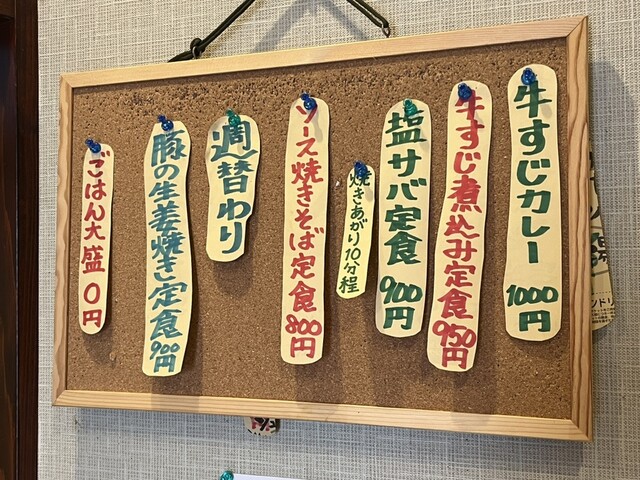 牛すじカレー 1000円
牛すじ煮込み定食 950円
塩サバ定食 900円
焼きあがり10分程
ソース焼きそば定食 800円
週替わり
豚の生姜焼き定食 900円
ごはん大盛 0円